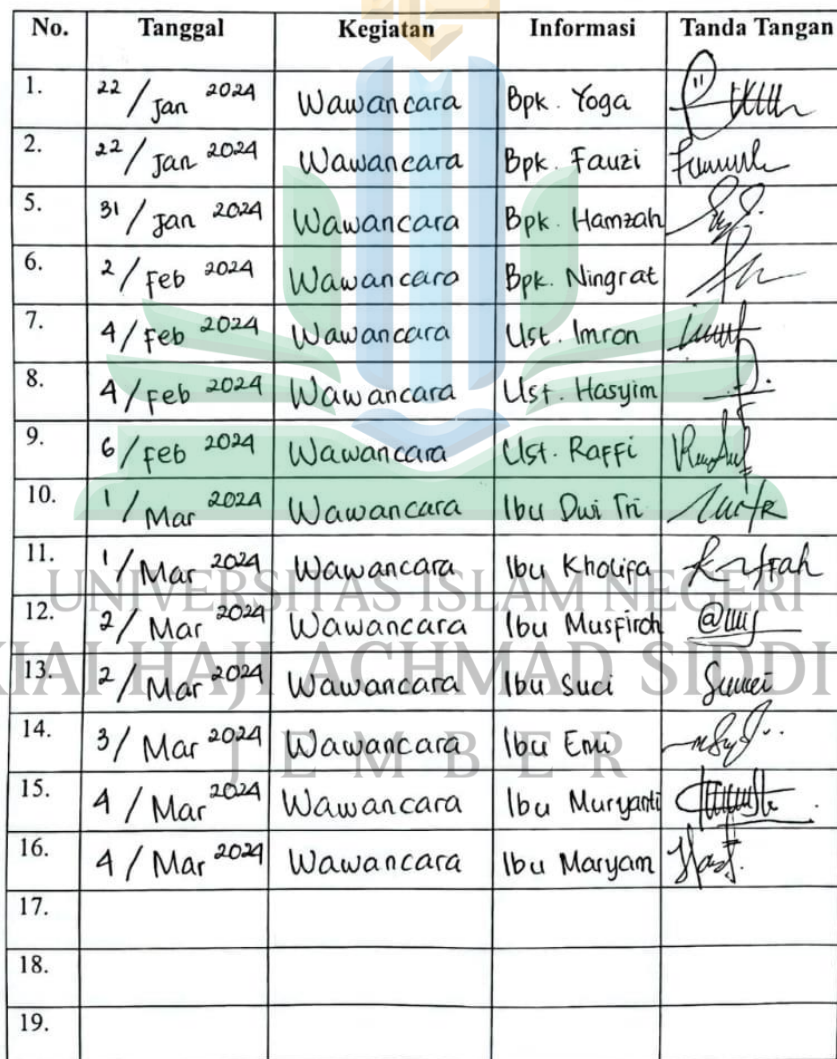 No. Tanggal Kegiatan Informasi Tanda Tangan
1. 22/Jan 2024 Wawancara Bpk. Yoga
2. 22/Jan 2024 Wawancara Bpk. Fauzi
5. 31/Jan 2024 Wawancara Bpk. Hamzah
6. 2/Feb 2024 Wawancara Bpk. Ningrat
7. 4/Feb 2024 Wawancara Ust. Imron
8. 4/Feb 2024 Wawancara Ust. Hasyim
9. 6/Feb 2024 Wawancara Ust. Raffi
10. 1/Mar 2024 Wawancara Ibu Dwi Tri
11. 1/Mar 2024 Wawancara Ibu Kholifa
UNIVERSITAS ISLAM NEGERI
12. 2/Mar 2024 Wawancara Ibu Musfiroh
KIAI HAJI ACHMAD SIDDI
13. 2/Mar 2024 Wawancara Ibu Suci
14. 3/Mar 2024 Wawancara Ibu Emi
JEMBER
15. 4/Mar 2024 Wawancara Ibu Muryanti
16. 4/Mar 2024 Wawancara Ibu Maryam
17.
18.
19.